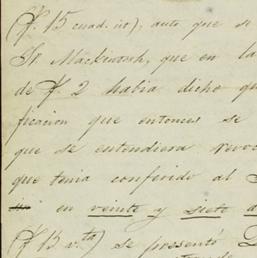 (f. 15 cuad. id), auto que se
Sr. Mackintosh, que en la
de f. 2 habia dicho qu
ficacion que entonces se
que se entendiera revoc
que tenia conferido al
en veinte y siete a
(f. 13 v.ta) se presentó D